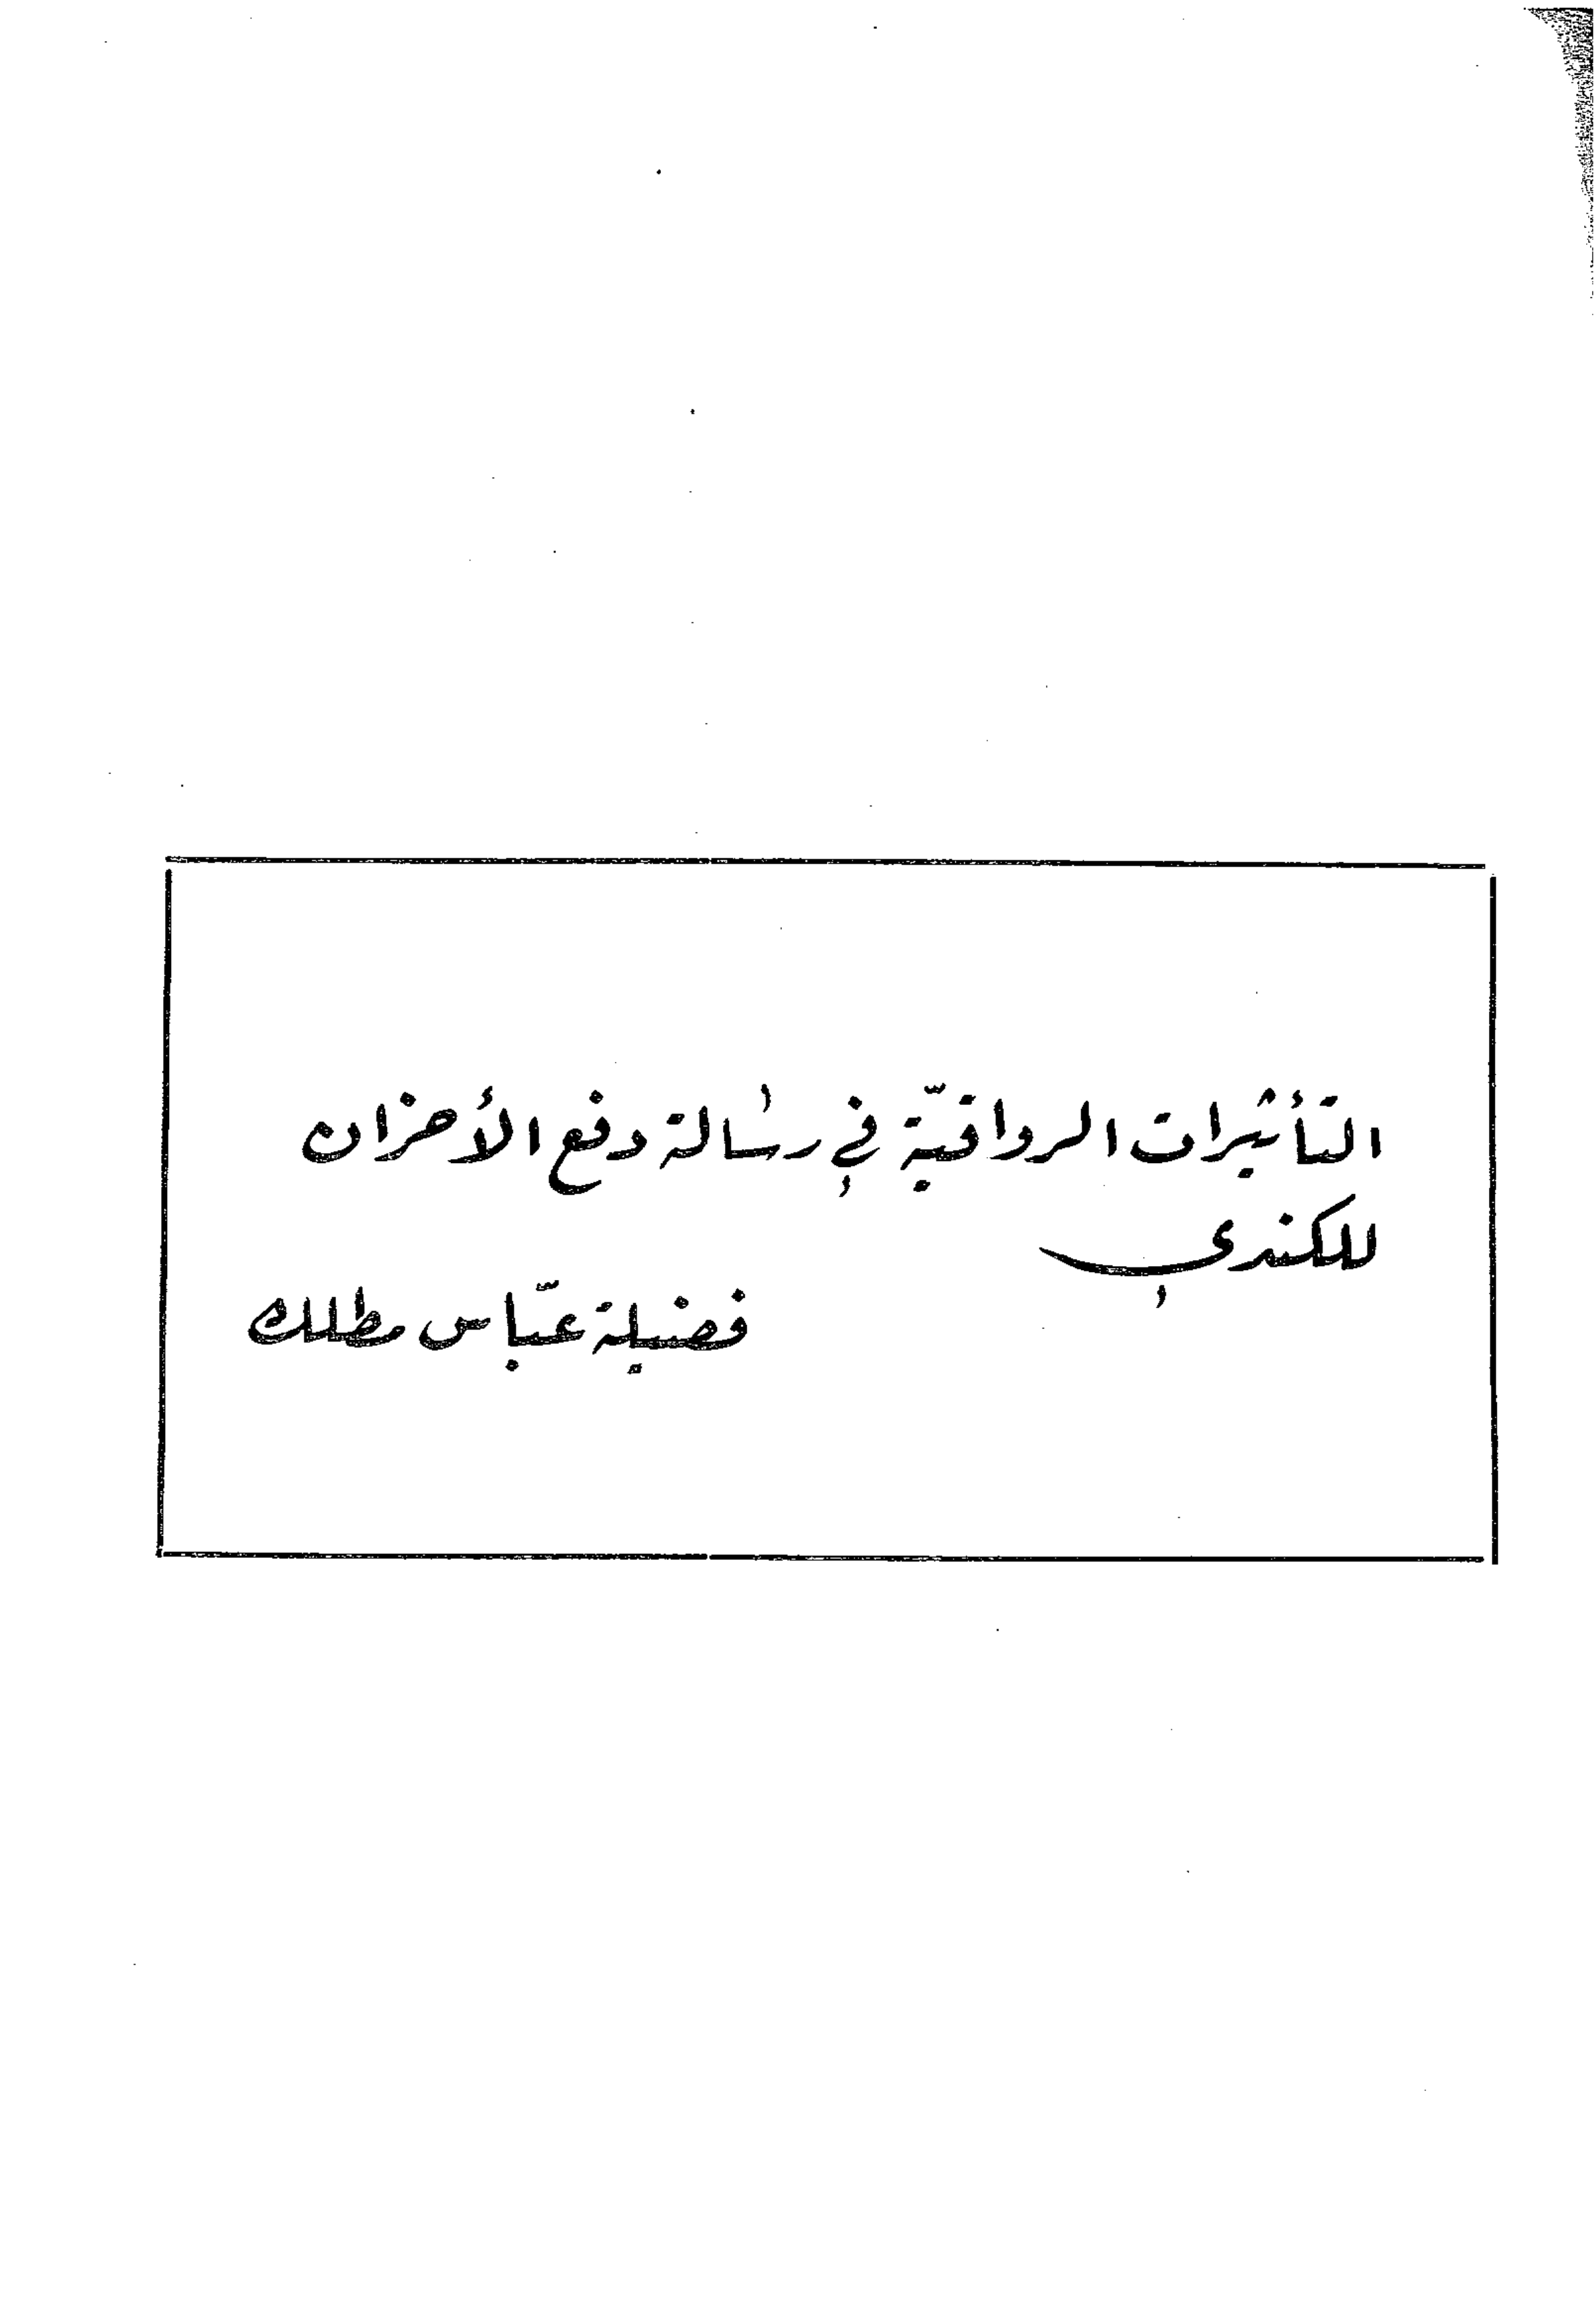 التأثيرات الرواقيّة في رسالة دفع الأحزان
للكندي
فضيلة عبّاس مطلك